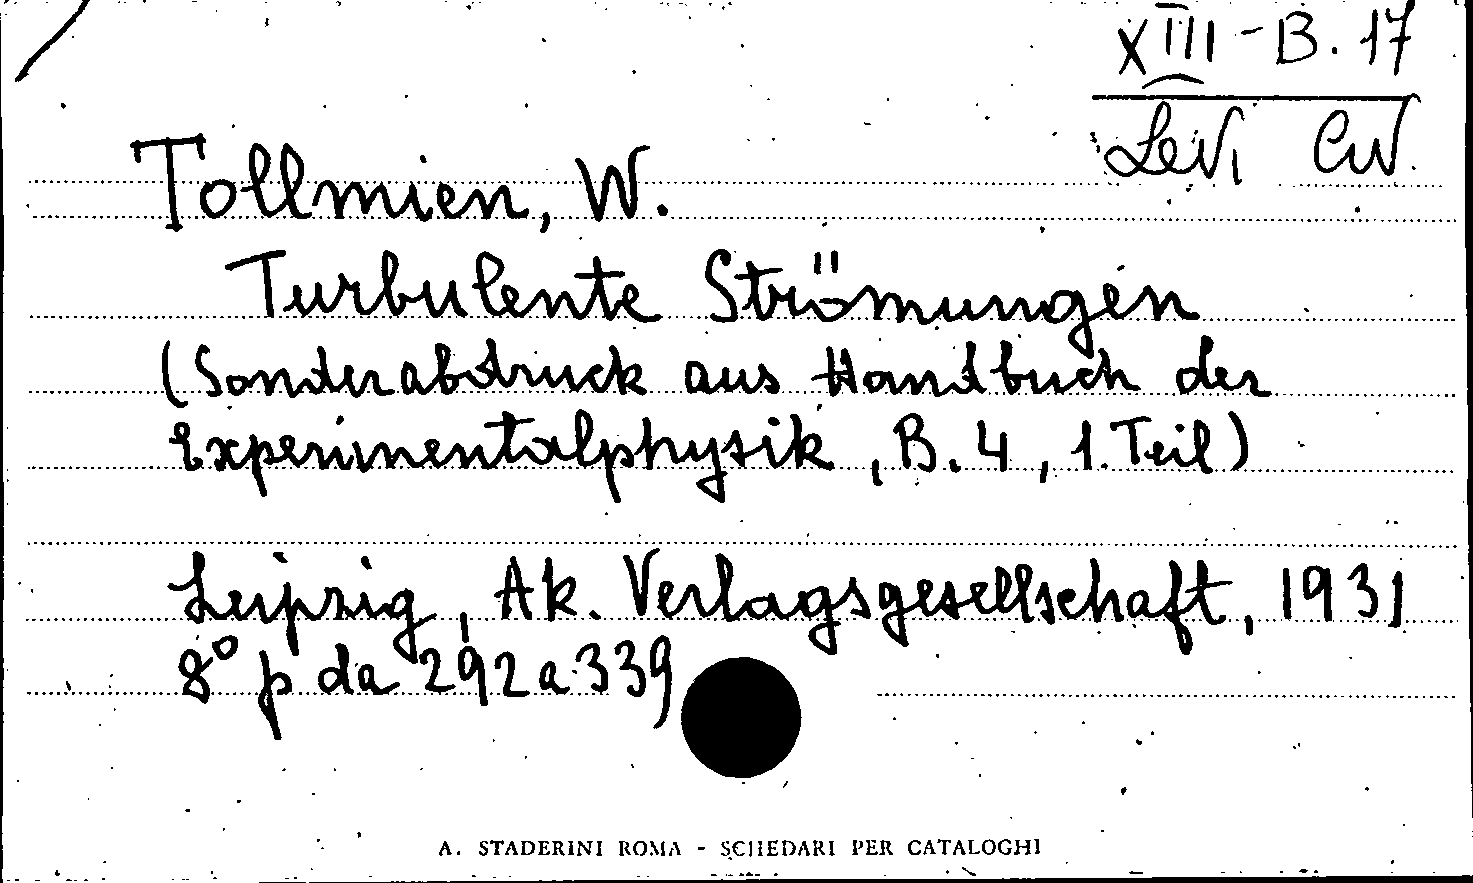 XIII - B. 17
Levi Civ.
Tollmien, W.
Turbulente Strömungen
(Sonderabdruck aus Handbuch der
Experimentalphysik, B. 4, 1. Teil)
Leipzig, Ak. Verlagsgesellschaft, 1931
8° p da 292 a 339
A. STADERINI ROMA - SCHEDARI PER CATALOGHI